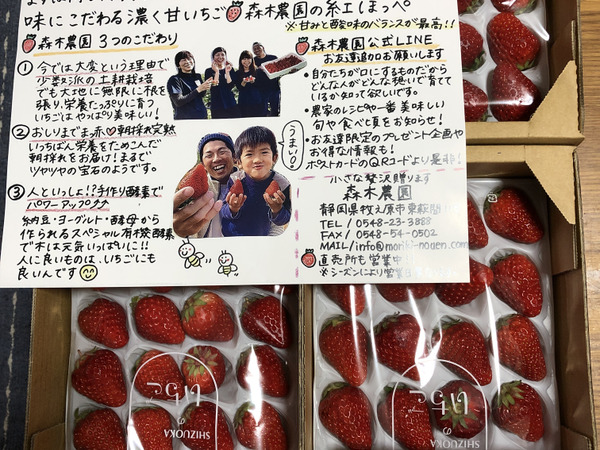 味にこだわる濃く甘いちご森木農園の紅ほっぺ
※甘みと酸味のバランスが最高!!
森木農園 3つのこだわり
① 今では大変という理由で
少数派の土耕栽培
でも大地に無限に根を
張り栄養たっぷりに育つ
いちごはやっぱり美味しい!
② おしりまでまっ赤♡朝採れ完熟
いっちばん栄養をためこんだ
朝採れをお届け!まるで
ツヤツヤの宝石のようです。
③ 人といっしょ!?手作り酵素で
パワーアップ
納豆・ヨーグルト・酵母から
作られるスペシャル有機酵素
で木は元気いっぱいに!!
人に良いものは、いちごにも
良いんです
うまっ
森木農園公式LINE
お友達追加お願いします
・自分たちが口にするものだから
どんな人がどんな想いで育てて
いるか知って欲しいです。
・農家のレシピや一番美味しい
旬や食べ頃をお知らせ!
・お友達限定のプレゼント企画や
お得な情報も!
ポストカードのQRコードより是非!
小さな贅沢贈ります
森木農園
静岡県牧之原市東萩間
TEL / 0548-23-3888
FAX / 0548-54-0502
MAIL / info@moriki-nouen.com
直売所も営業中
※シーズンにより営業
いちご
の
SHIZUOKA
いちご
の
SHIZUOKA